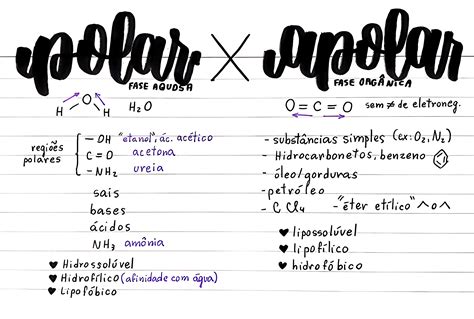 polar X apolar
FASE AQUOSA
FASE ORGÂNICA
H O H H₂O
O=C=O sem ≠ de eletroneg.
regiões polares
— OH "etanol", ác. acético
C = O acetona
— NH₂ ureia
sais
bases
ácidos
NH₃ amônia
♥ Hidrossolúvel
♥ Hidrofílico (afinidade com água)
♥ Lipofóbico
- substâncias simples (ex: O₂, N₂)
- Hidrocarbonetos, benzeno
- óleo/gorduras
- petróleo
- C Cl₄ - "éter etílico" ^o^
♥ lipossolúvel
♥ lipofílico
♥ hidrofóbico